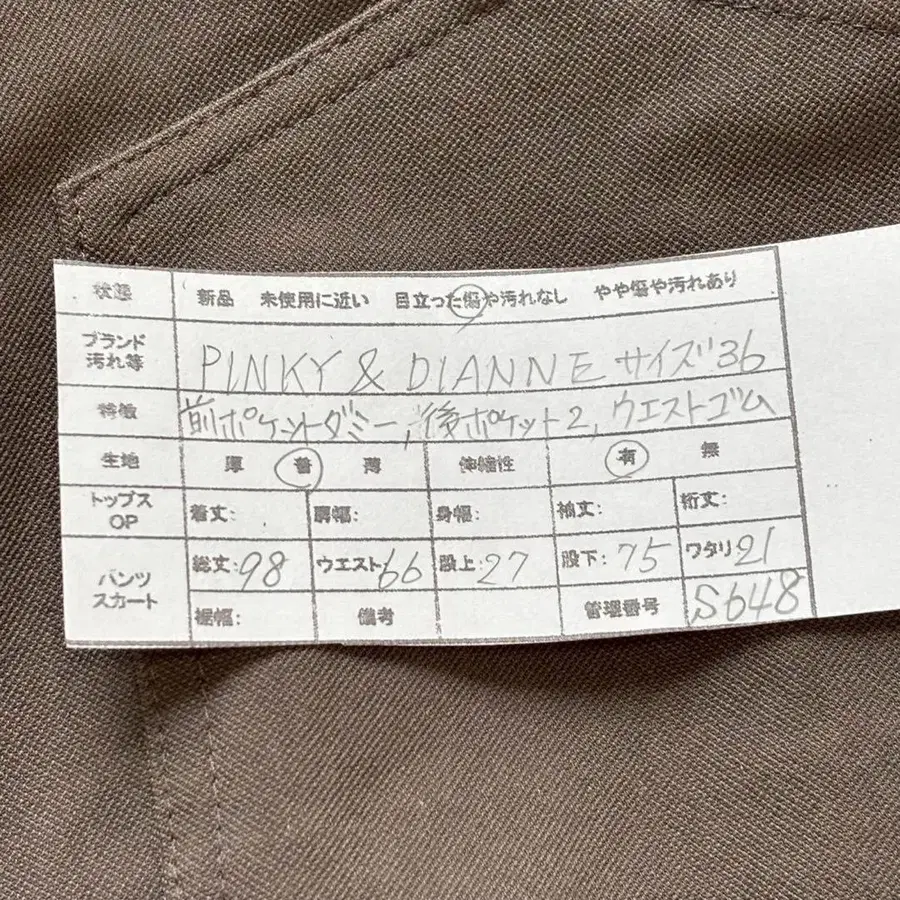 状態 新品 未使用に近い 目立った傷や汚れなし やや傷や汚れあり
ブランド 汚れ等 PINKY & DIANNE サイズ36
特徴 前ポケットダミー, 後ポケット2, ウエストゴム
生地 厚 普 薄 伸縮性 有 無
トップス OP 着丈: 肩幅: 身幅: 袖丈: 裄丈:
パンツ スカート 総丈:98 ウエスト66 股上:27 股下:75 ワタリ21
裾幅: 備考 管理番号 S648